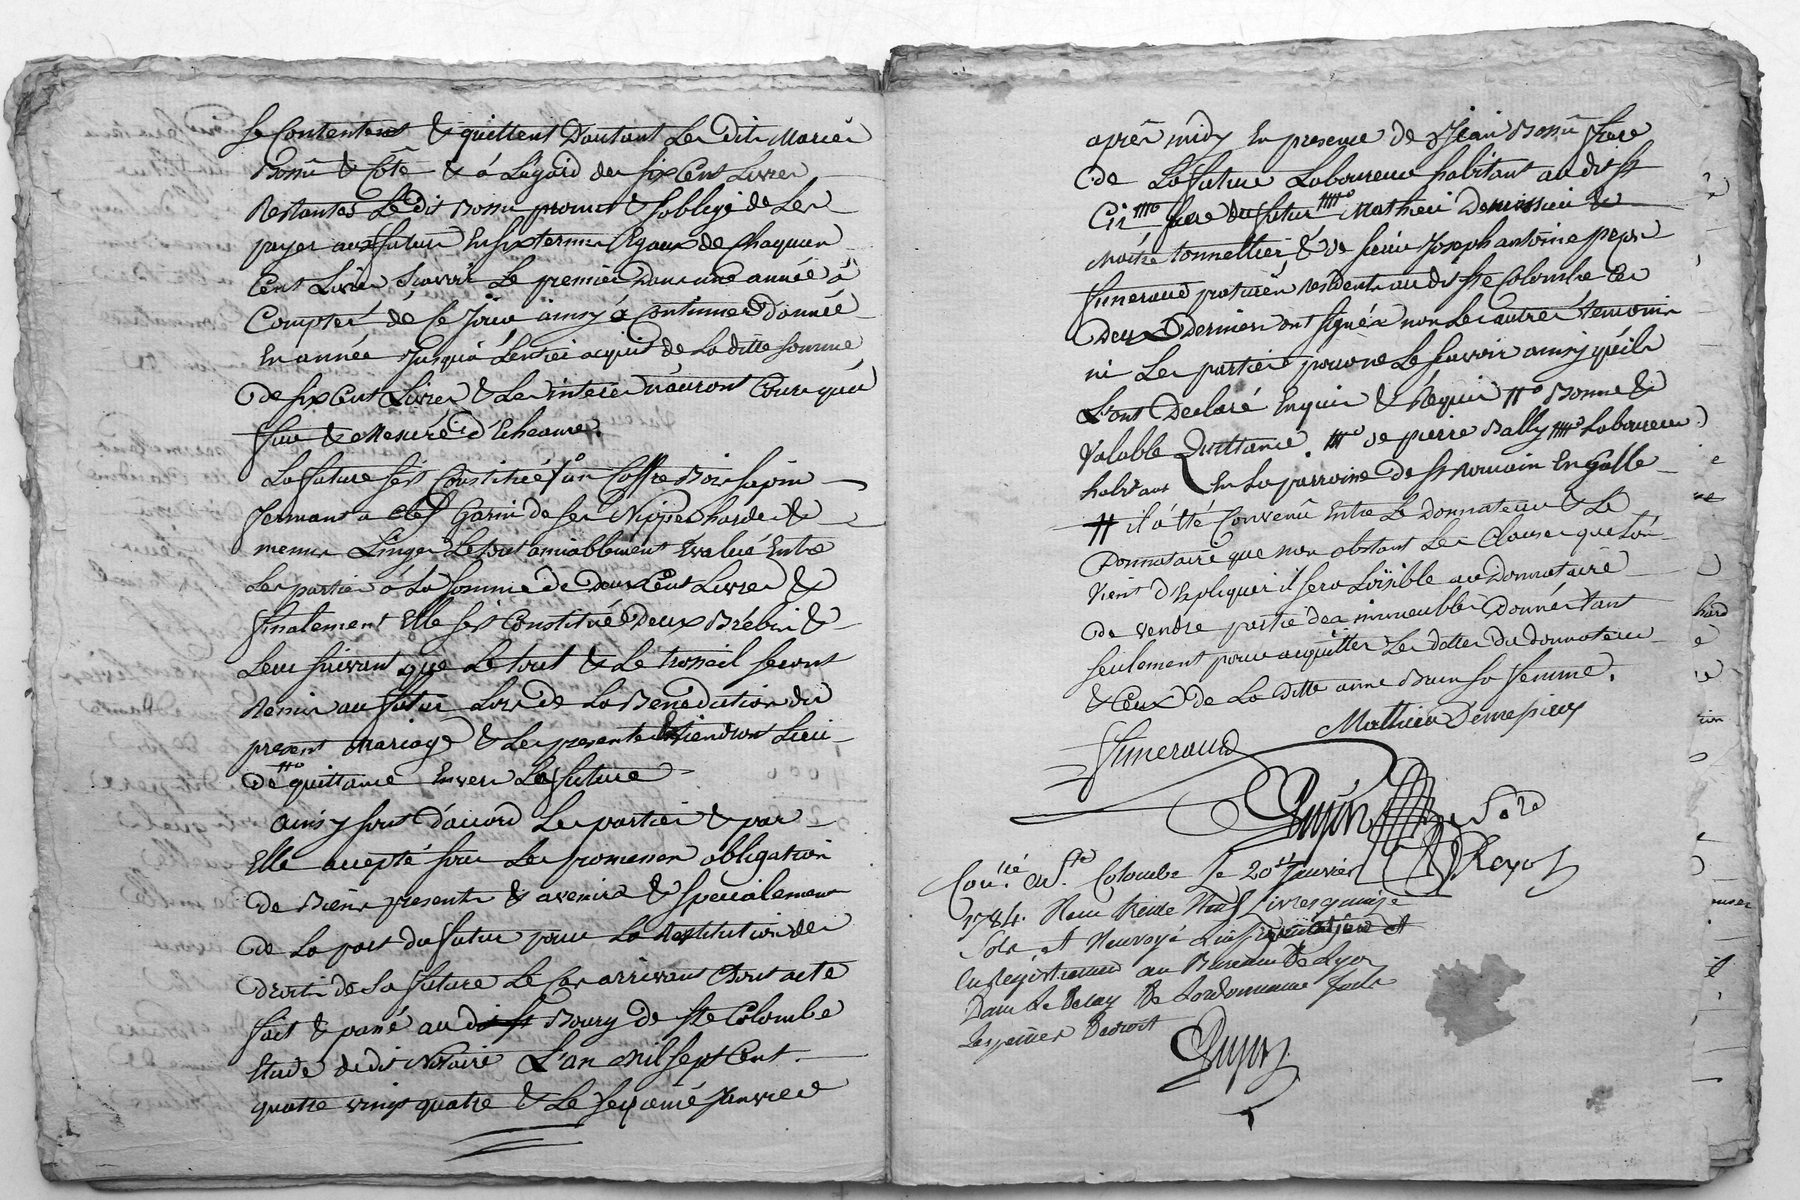 se Contentent & quittent D'autant Les dits Mariés
Bossu & Côte & à L'égard des six Cent Livres
Restantes Le dit Bossu promet & s'oblige de Les
payer aux futur En six termes Egaux de Chaqu'un
Cent Livres sçavoir Le premier Dans une année à
Compter de Ce Jour ainsy à Continuer D'année
En année Jusqu'à L'entier acquit de La ditte somme
De six Cent Livres & Les interes n'auront Cours qu'au
fur & Mesure d'Echeance.
La future s'est Constituée un Coffre Bois sapin
fermant a Clef Garni de ses Nippes hardes &
menus Linges Le tout amiablement Evalué Entre
Les parties à La somme de Deux Cent Livres &
finalement Elle s'est Constitué Deux Brebis &
Leur suivant que Le tout & Le trosseil seront
Remis au futur Lors de La Benediction du
present Mariage & Les presentes tiendront Lieu
De quittance Envers La future
Ainsy sont d'accord Les parties & par
Elle accepté sous Les promesses obligation
De Biens presents & avenirs & specialement
De La part du futur pour La Restitution des
Droits de La future Le Cas arrivant Dont acte
fait & passé au dit st Bourg de Ste Colombe
Etude du dit Notaire L'an Mil sept Cent
quatre vingt quatre & Le seizieme Janvier
après midy En presence de Jean Bossu frere
De La future Laboureur habitant au dit st
Cir frere du futur Mathieu Demessieu
Maître tonnellier & de sieur Joseph antoine
fimeraud praticien Residents au dit Ste Colombe Ces
Deux Derniers ont signés non Les autres temoins
ni Les parties pour ne Le sçavoir ainsy qu'ils
L'ont Declaré Enquis & Requis # Bonne &
Valable Quittance. de pierre Bally Laboureur
habitant En La parroisse de st Romain En Galle
# il a été Convenû Entre Le Donnateur & Le
Donnataire que non obstant Les Clauses que L'on
Vient d'Expliquer il sera Loisible au Donnataire
De vendre partie des immeubles Donnés tant
seulement pour acquitter Les dettes du donnateur
& Ceux De La ditte anne Brun sa femme.
Mathieu Demesieux
fimeraud
Dujon
Royot
Con.lé a Ste Colombe Le 20 Janvier
1784. Reçu treize Neuf Livres quinze
Sols et Renvoyé
Enregistrement au Bureau De Lyon
Dans Le Delay De Lordonnance
Dujon